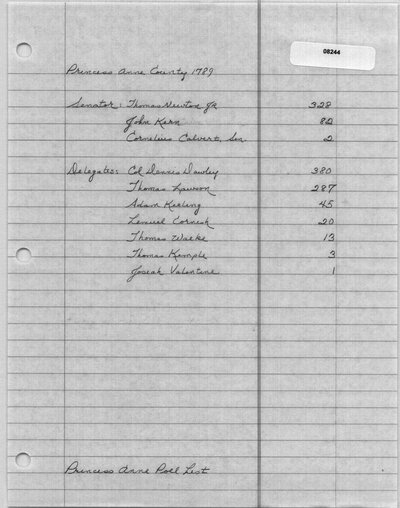 08244
Princess Anne County 1789
Senator: Thomas Newton Jr 328
John Karn 82
Cornelius Calvert, Sen. 2
Delegates: Col Dennis Dawley 380
Thomas Lawson 287
Adam Keeling 45
Lemuel Cornick 20
Thomas Walke 13
Thomas Kemple 3
Josiah Valentine 1
Princess Anne Poll List